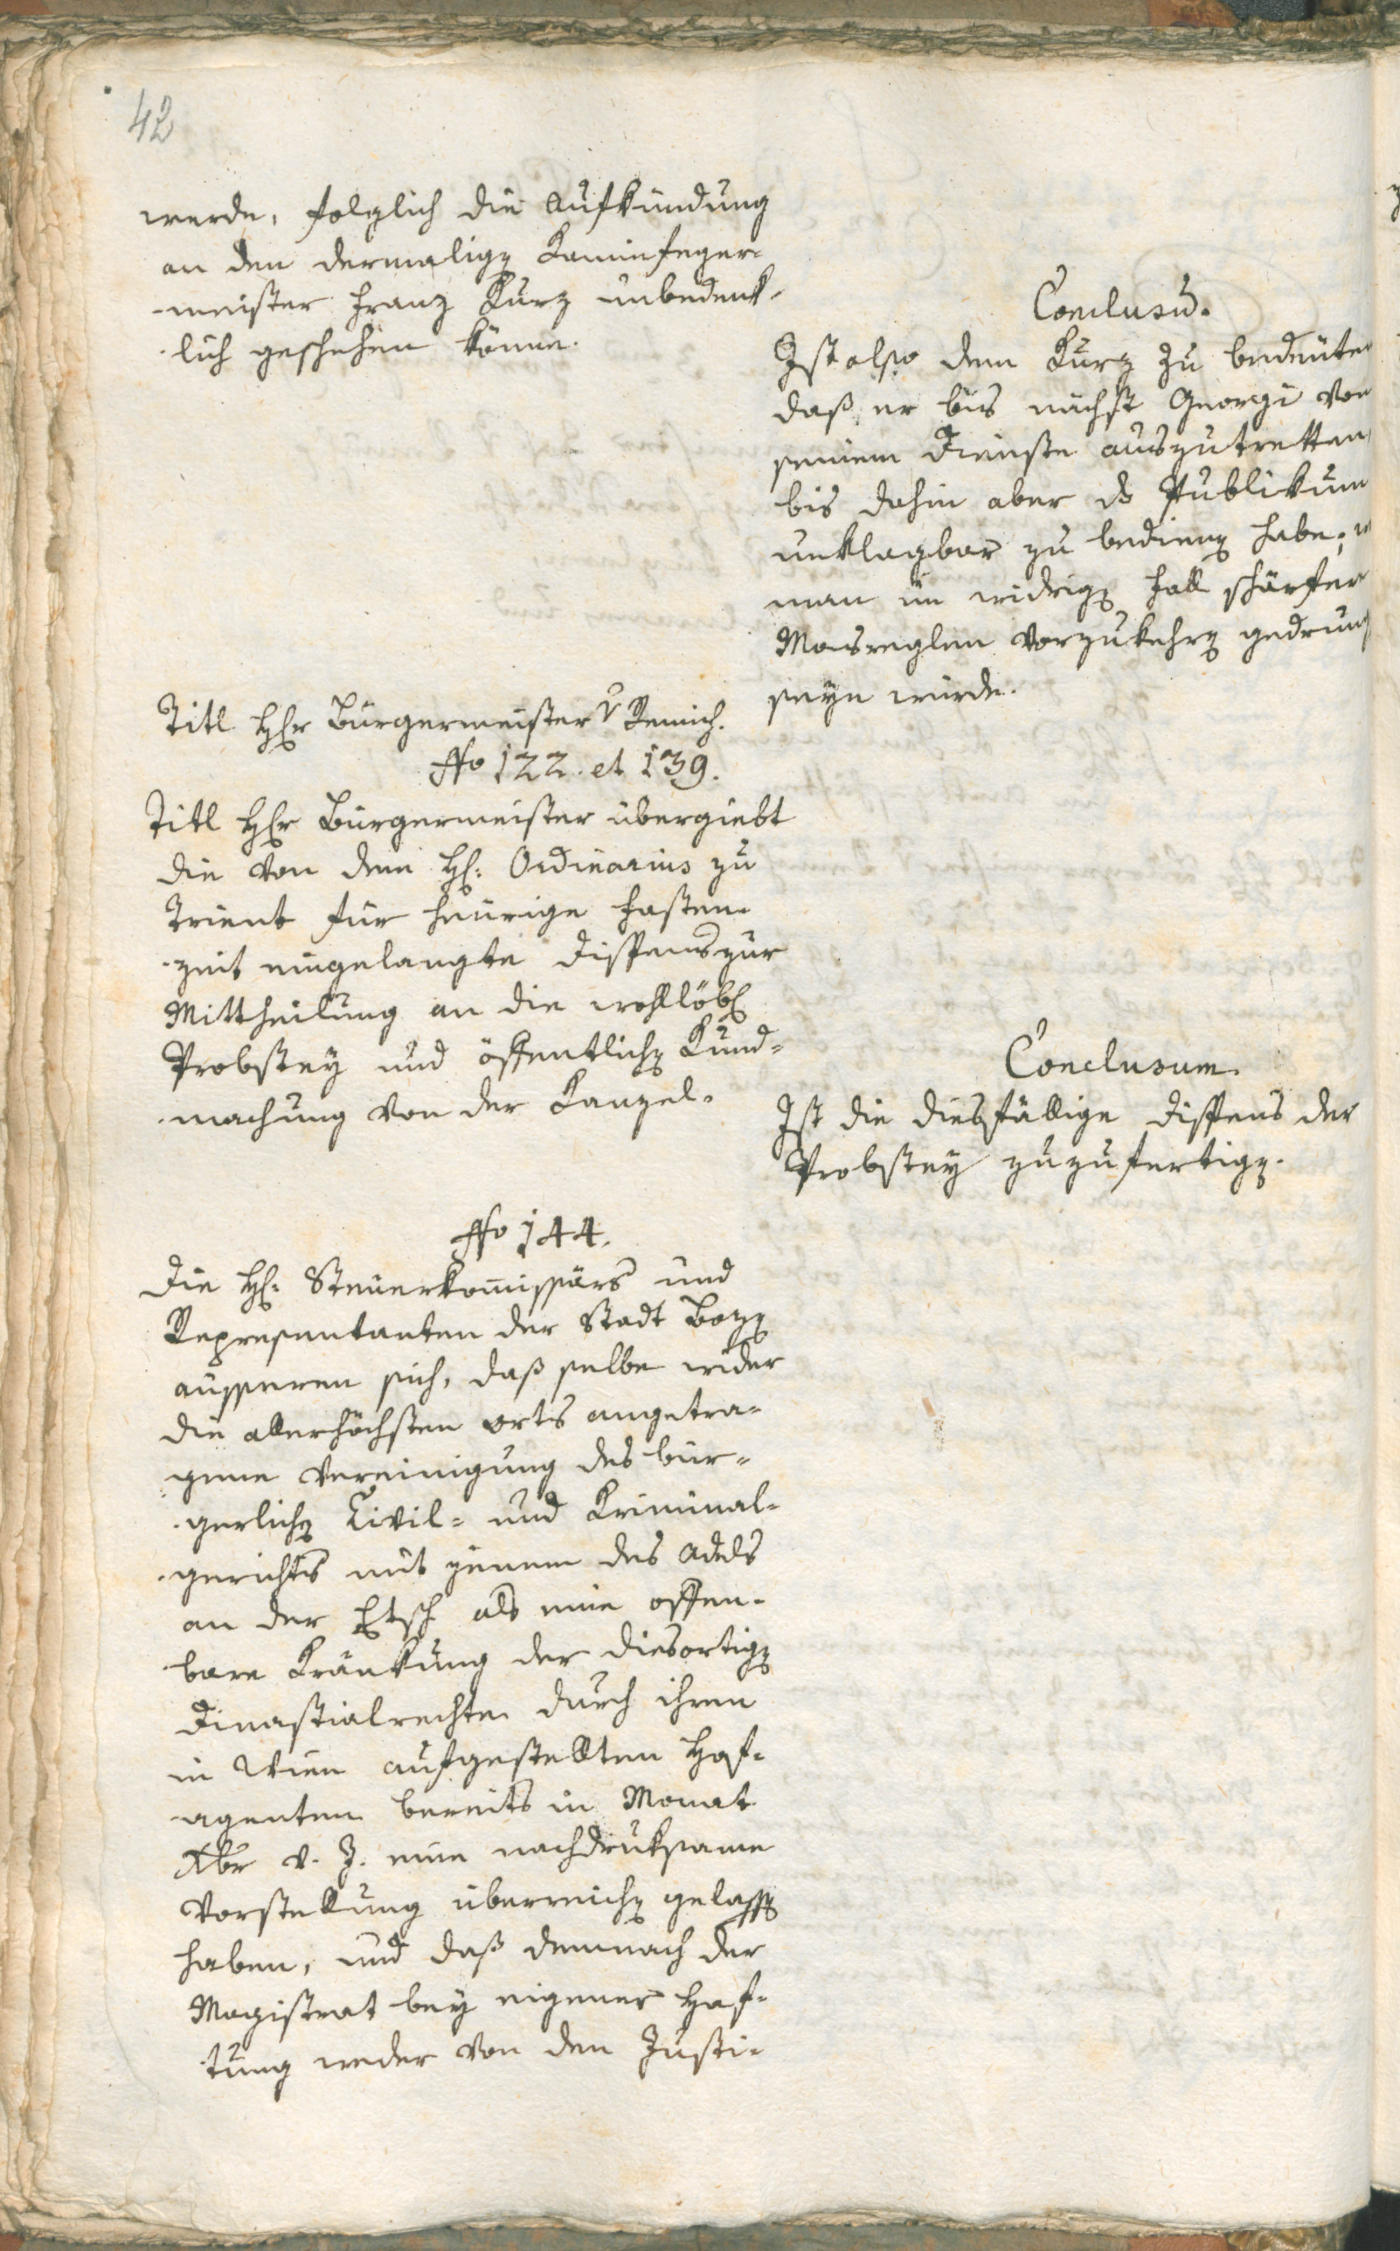 42
werde, folglich die Aufkündung
an den dermalig Kaminfeger-
-meister Franz Kurz unbedenk-
-lich geschehen könne.
Conclusũ.
Ist also dem Kurz zu bedeuten
daß er bis nächst Georgi von
seinem Dienste auszutretten
bis dahin aber ds Publikum
unklagbar zu bedienen habe,
man im widrigen Fall schärfer
Masreglen vorzukehren gedrung
seyn würde.
Titl Hr Bürgermeister v Remich.
ffo 122. et 139.
Titl Hr Bürgermeister übergiebt
die von dem H: Ordinarius zu
Trient für heurige Fasten-
-zeit eingelangte Dispens zur
Mittheilung an die wohllöbl
Probstey und öffentlichen Kund-
-machung von der Kanzel.
Conclusum.
Ist die diesfällige Dispens der
Probstey zuzufertigen.
ffo 144.
Die H: Steuerkom̄issärs und
Representanten der Stadt Bozen
äusseren sich, daß selbe wider
die allerhöchsten orts angetra-
gene Vereinigung des bür-
-gerlichen Civil- und Kriminal-
-gerichts mit jenem des Adels
an der Etsch als eine offen-
bare Kränkung der diesortigen
Dinastialrechte durch ihren
in Wien aufgestellten Hof-
-agenten bereits in Monat
Xbr v. J. eine nachdruksame
Vorstellung überreichen gelassen
haben, und daß demnach der
Magistrat bey eigener Haf-
-tung weder von den Justi-